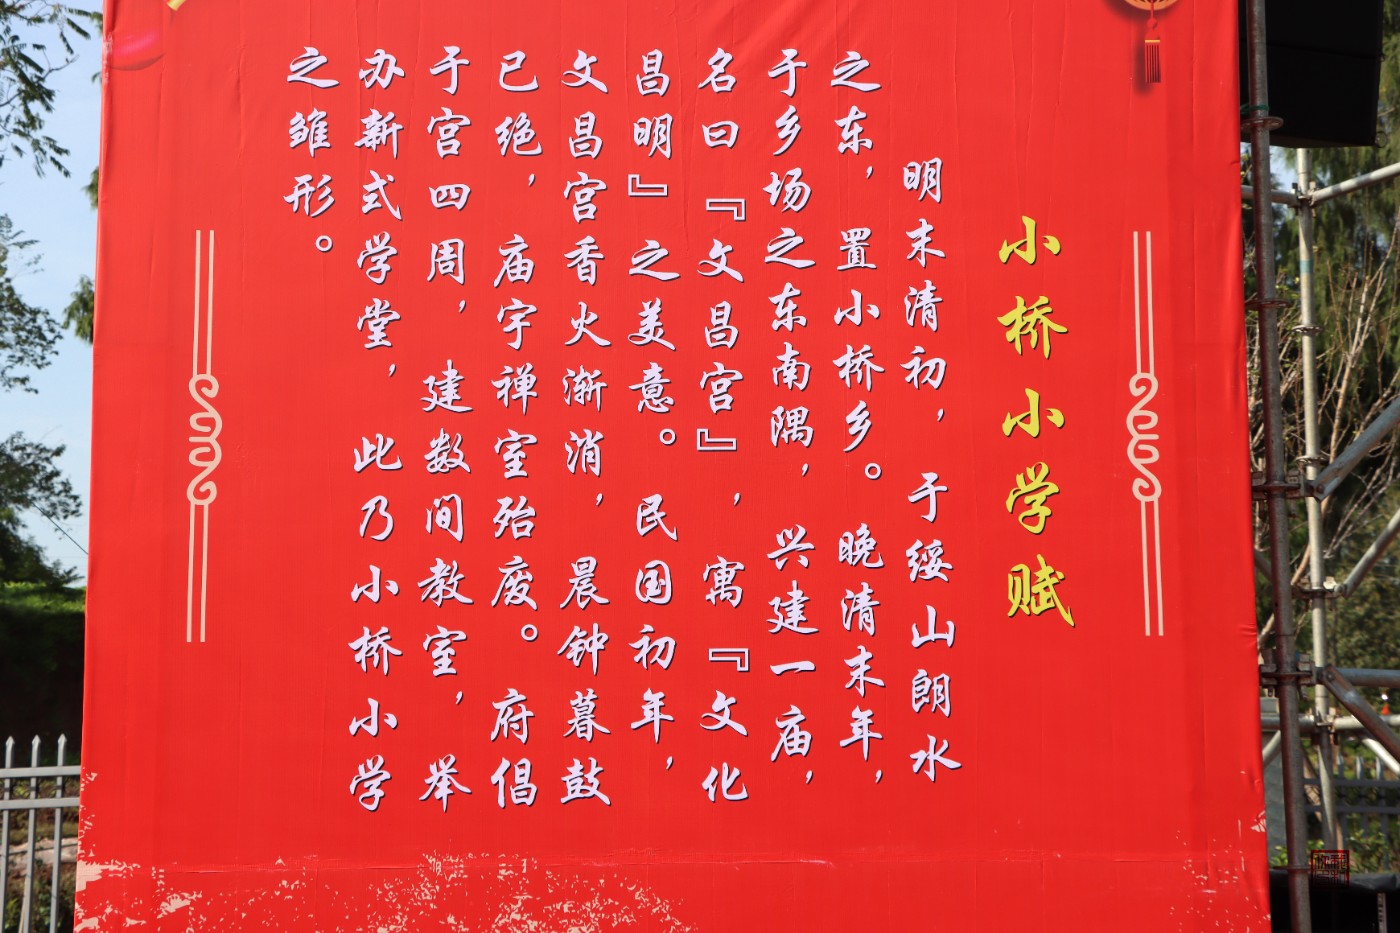 小桥小学赋
明末清初，于绥山朗水
之东，置小桥乡。晚清末年，
于乡场之东南隅，兴建一庙，
名曰『文昌宫』，寓『文化
昌明』之美意。民国初年，
文昌宫香火渐消，晨钟暮鼓
已绝，庙宇禅室殆废。府倡
于宫四周，建数间教室，举
办新式学堂，此乃小桥小学
之雏形。